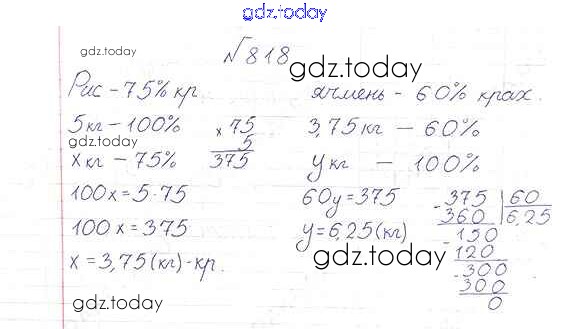 gdz.today
№818
gdz.today
gdz.today
Рис - 75% кр.
5 кг - 100%
gdz.today
х кг - 75%
× 75
5
375
100х = 5·75
100х = 375
х = 3,75 (кг) - кр.
gdz.today
ячмень - 60% крах.
3,75 кг - 60%
у кг - 100%
60у = 375
у = 6,25 (кг)
gdz.today
- 375 | 60
360 | 6,25
- 150
120
- 300
300
0